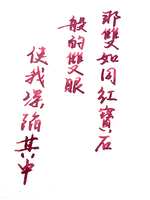 那雙如同紅寶石
般的雙眼
使我深陷其中